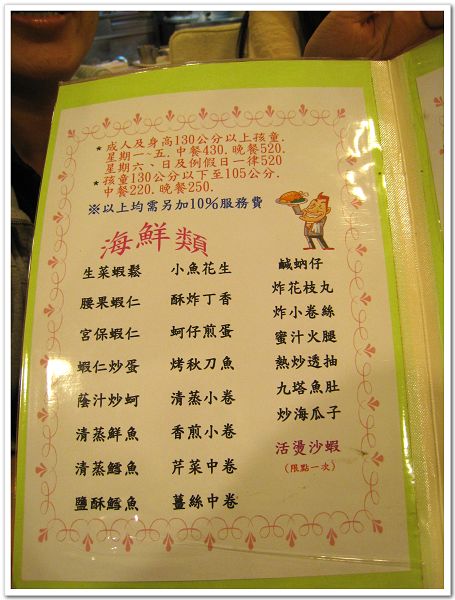 *成人及身高130公分以上孩童.
星期一-五. 中餐430. 晚餐520.
星期六、日及例假日一律520
*孩童130公分以下至105公分.
中餐220. 晚餐250.
※以上均需另加10%服務費
海鮮類
生菜蝦鬆
腰果蝦仁
宮保蝦仁
蝦仁炒蛋
蔭汁炒蚵
清蒸鮮魚
清蒸鱈魚
鹽酥鱈魚
小魚花生
酥炸丁香
蚵仔煎蛋
烤秋刀魚
清蒸小卷
香煎小卷
芹菜中卷
薑絲中卷
鹹蚋仔
炸花枝丸
炸小卷絲
蜜汁火腿
熱炒透抽
九塔魚肚
炒海瓜子
活燙沙蝦
(限點一次)